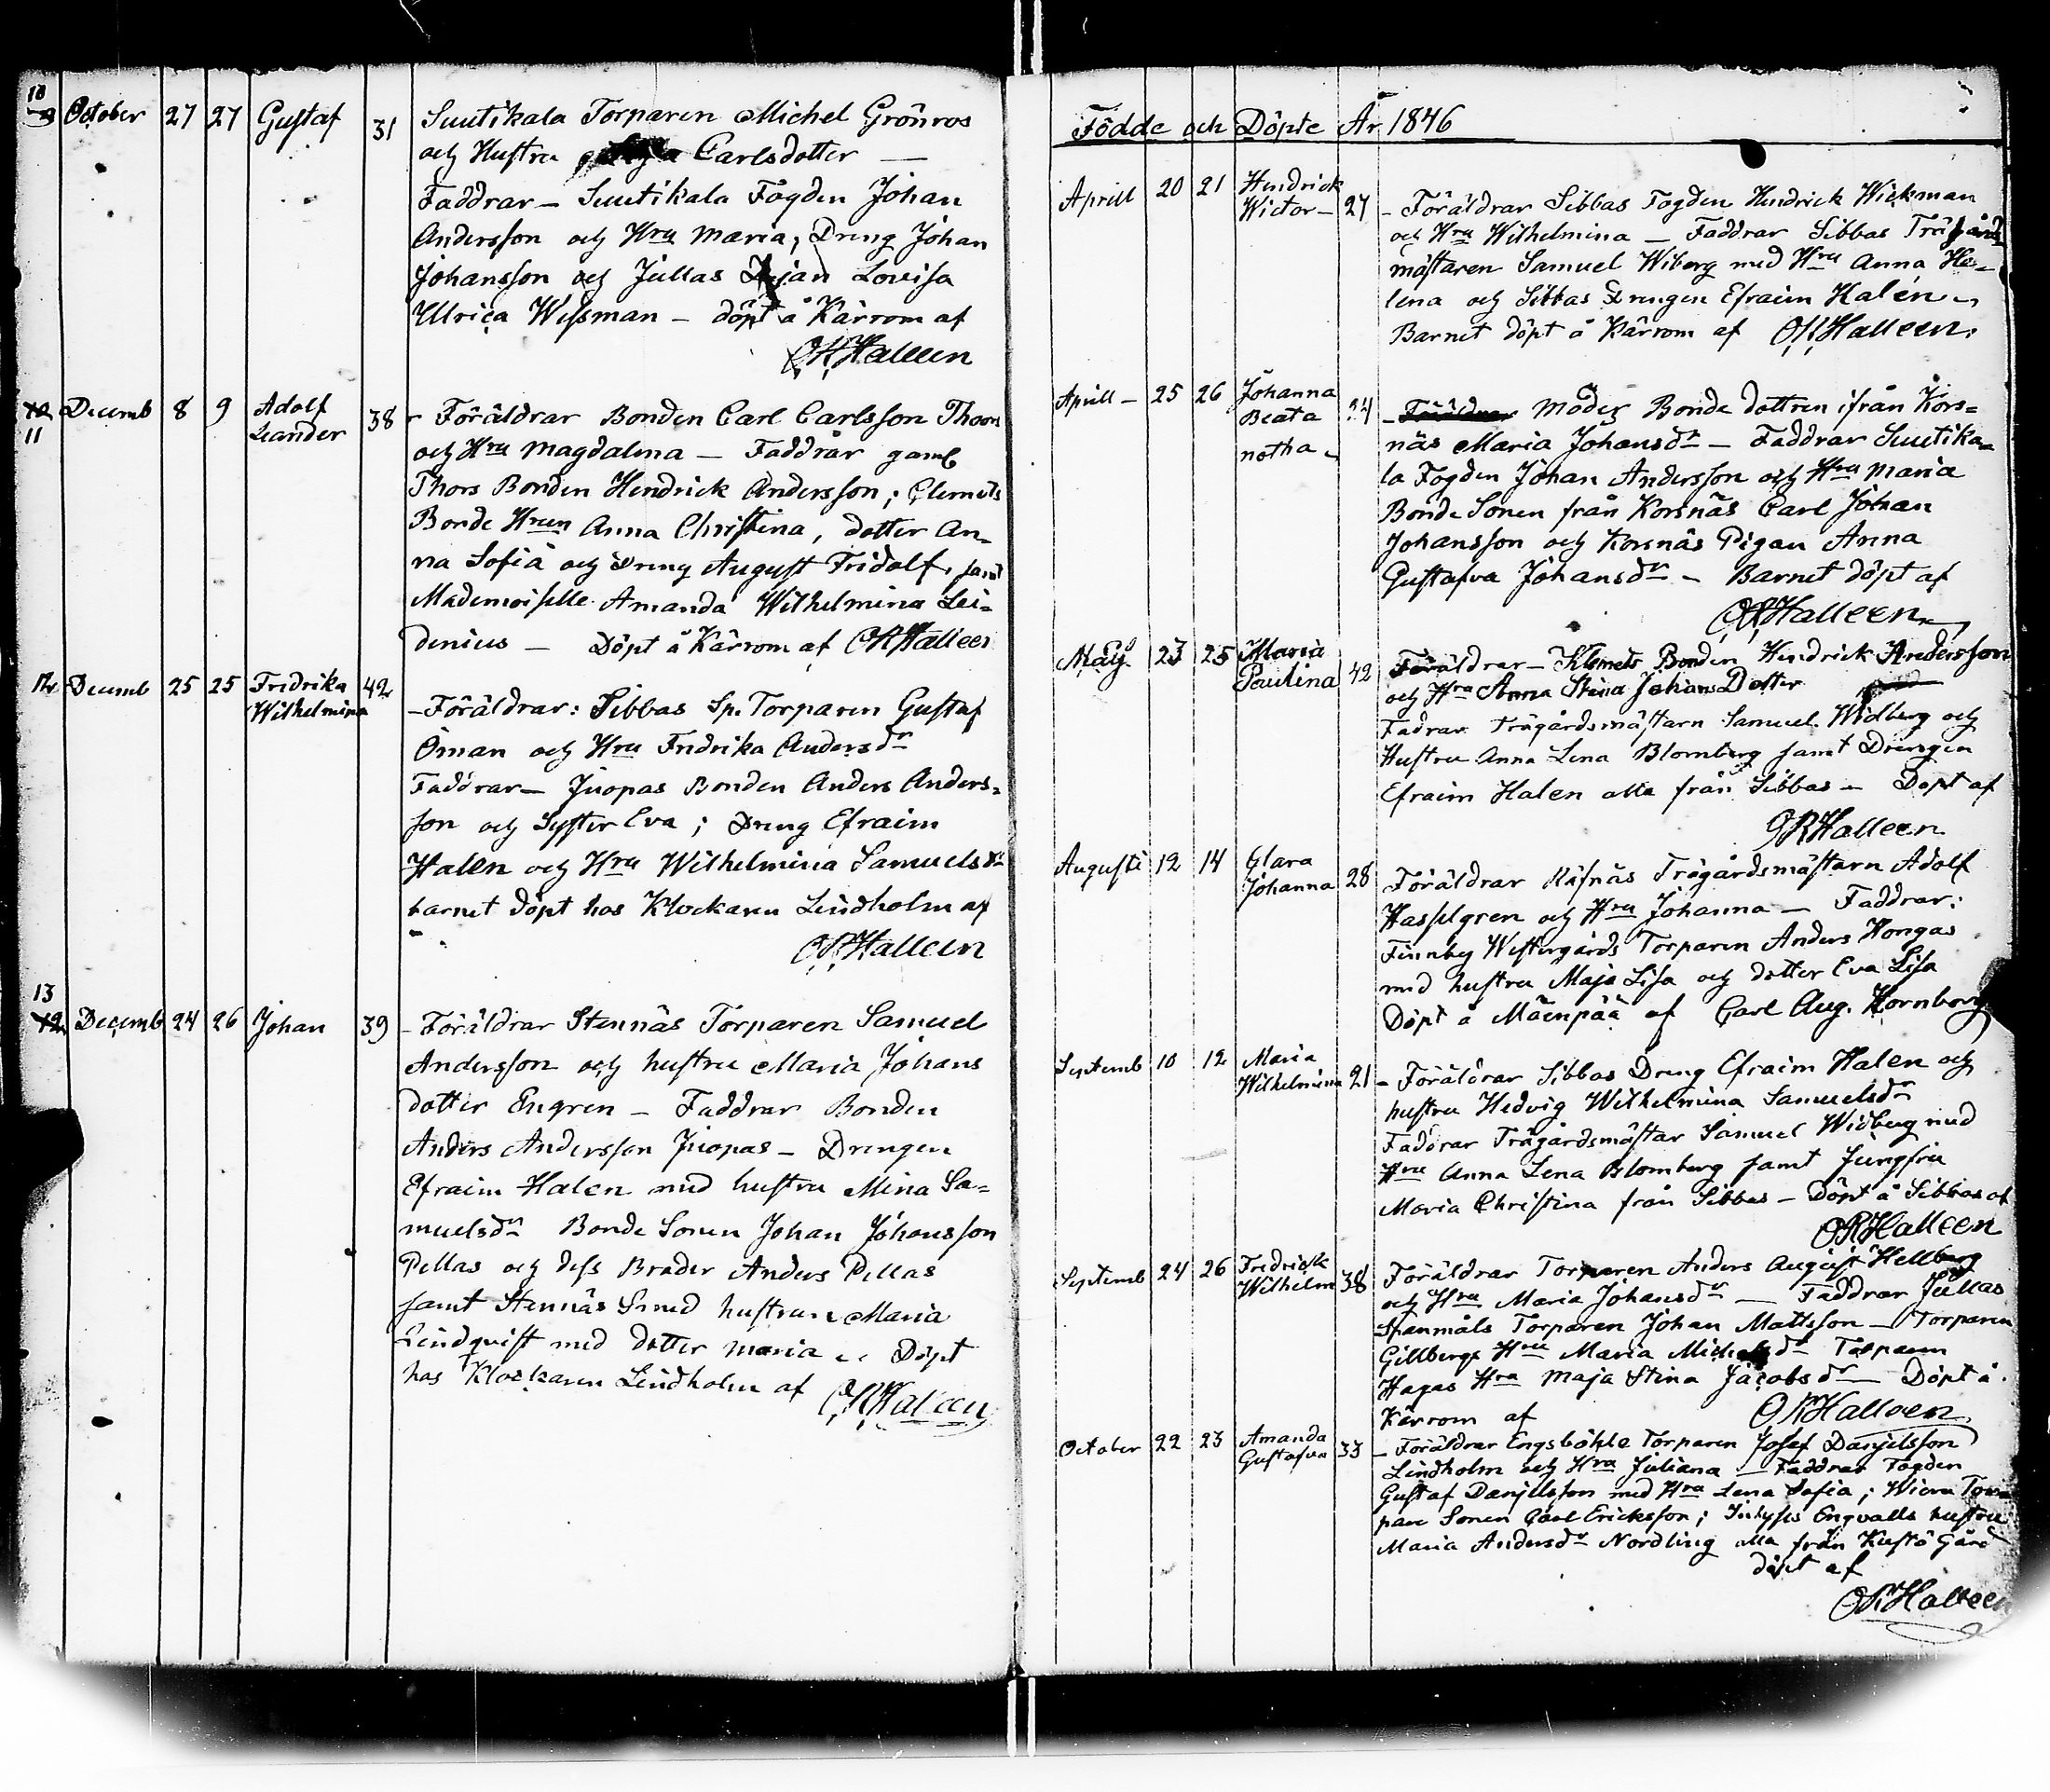 10
October 27 27 Gustaf 31 Suutikala Torparen Michel Grönros
och Hustru Carlsdotter —
Faddrar — Suutikala Fogden Johan
Andersson och Hru Maria, Dreng Johan
Johansson och Jullas Pijan Lovisa
Ullrica Wessman — döpt å Kärrom af
ORHalleen
11 Decemb 8 9 Adolf Leander 38 Föräldrar Bonden Carl Carlsson Thoors
och Hru Magdalena — Faddrar gamb
Thors Bonden Hendrick Andersson; Clemets
Bonde Hrun Anna Christina, dotter An-
na Sofia och Dreng August Fridolf, samt
Mademoiselle Amanda Wilhelmina Lei-
denius — Döpt å Kärrom af ORHalleen
12 Decemb 25 25 Fredrika Wilhelmina 42
— Föräldrar: Sibbas Sp. Torparen Gustaf
Öman och Hru Fredrika Andersdr
Faddrar — Juopas Bonden Anders Anders-
son och Syster Eva; Dreng Efraim
Halen och Hru Wilhelmina Samuelsdr
barnet döpt hos Klockaren Lindholm af
ORHalleen
13
12 Decemb 24 26 Johan 39 — Föräldrar Stennäs Torparen Samuel
Andersson och hustru Maria Johans
dotter Engren — Faddrar Bonden
Anders Andersson Juopas — Drengen
Efraim Halen med hustru Mina Sa-
muelsdr Bonde Sonen Johan Johansson
Pellas och dess Broder Anders Pellas
samt Stennäs Smed hustrun Maria
Lindqvist med dotter Maria Döpt
hos Klockaren Lindholm af ORHalleen
Födde och Döpte År 1846
Aprill 20 21 Hendrick Wictor — 27 — Föräldrar Sibbas Fogden Hendrick Wickman
och Hru Wilhelmina — Faddrar Sibbas Trägårds
mästaren Samuel Wiberg med Hru Anna He-
lena och Sibbas Drengen Efraim Halén —
Barnet döpt å Kärrom af ORHalleen.
Aprill — 25 26 Johanna Beata notha 24 — Föräldrar Moder Bonde dottren ifrån Kors-
näs Maria Johansdr — Faddrar Suutika-
la Fogden Johan Andersson och Hru Maria
Bonde Sonen från Korsnäs Carl Johan
Johansson och Korsnäs Pigan Anna
Gustafva Johansdr — Barnet döpt af
ORHalleen
May 23 25 Maria Paulina 42 Föräldrar — Klemets Bonden Hendrick Andersson
och Hru Anna Stina Johans Dotter
Fadrar Trägårdsmästarn Samuel Widberg och
Hustru Anna Lena Blomberg samt Drengen
Efraim Halen alla från Sibbas — Döpt af
ORHalleen
Augusti 12 14 Clara Johanna 28 Föräldrar Räfnäs Trägårdsmästarn Adolf
Hasselgren och Hru Johanna — Faddrar:
Finnby Westergårds Torparen Anders Hongas
med hustru Maja Lisa och dotter Eva Lisa
Döpt å Mäenpää af Carl Aug. Hornborg
Septemb 10 12 Maria Wilhelmina 21 — Föräldrar Sibbas Dreng Efraim Halen och
hustru Hedvig Wilhelmina Samuelsdr
Faddrar Trägårdsmästar Samuel Widberg med
Hru Anna Lena Blomberg samt Jungfru
Maria Christina från Sibbas — Döpt å Sibbas af
ORHalleen
Septemb 24 26 Fredrick Wilhelm 38 Föräldrar Torparen Anders August Hellberg
och Hru Maria Johansdr — Faddrar Jullas
Spanmåls Torparen Johan Mattsson — Torparen
Gillbergs Hru Maria Michelsdr Torparen
Hagas Hru Maja Stina Jacobsdr — Döpt å
Kärrom af ORHalleen
October 22 23 Amanda Gustafva 33 — Föräldrar Engsböhle Torparen Josef Danjelsson
Lindholm och Hru Juliana — Faddrar Fogden
Gustaf Danjelsson med Hru Lena Sofia; Torpare
Sonen Carl Ericksson; Inhyses Engvalls hustru
Maria Andersdr Nordling alla från Kustö Gård
döpt af
ORHalleen